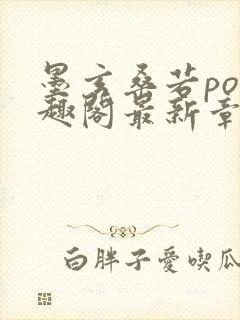 墨玄桑若po
趣阁最新章
白胖子愛喫瓜